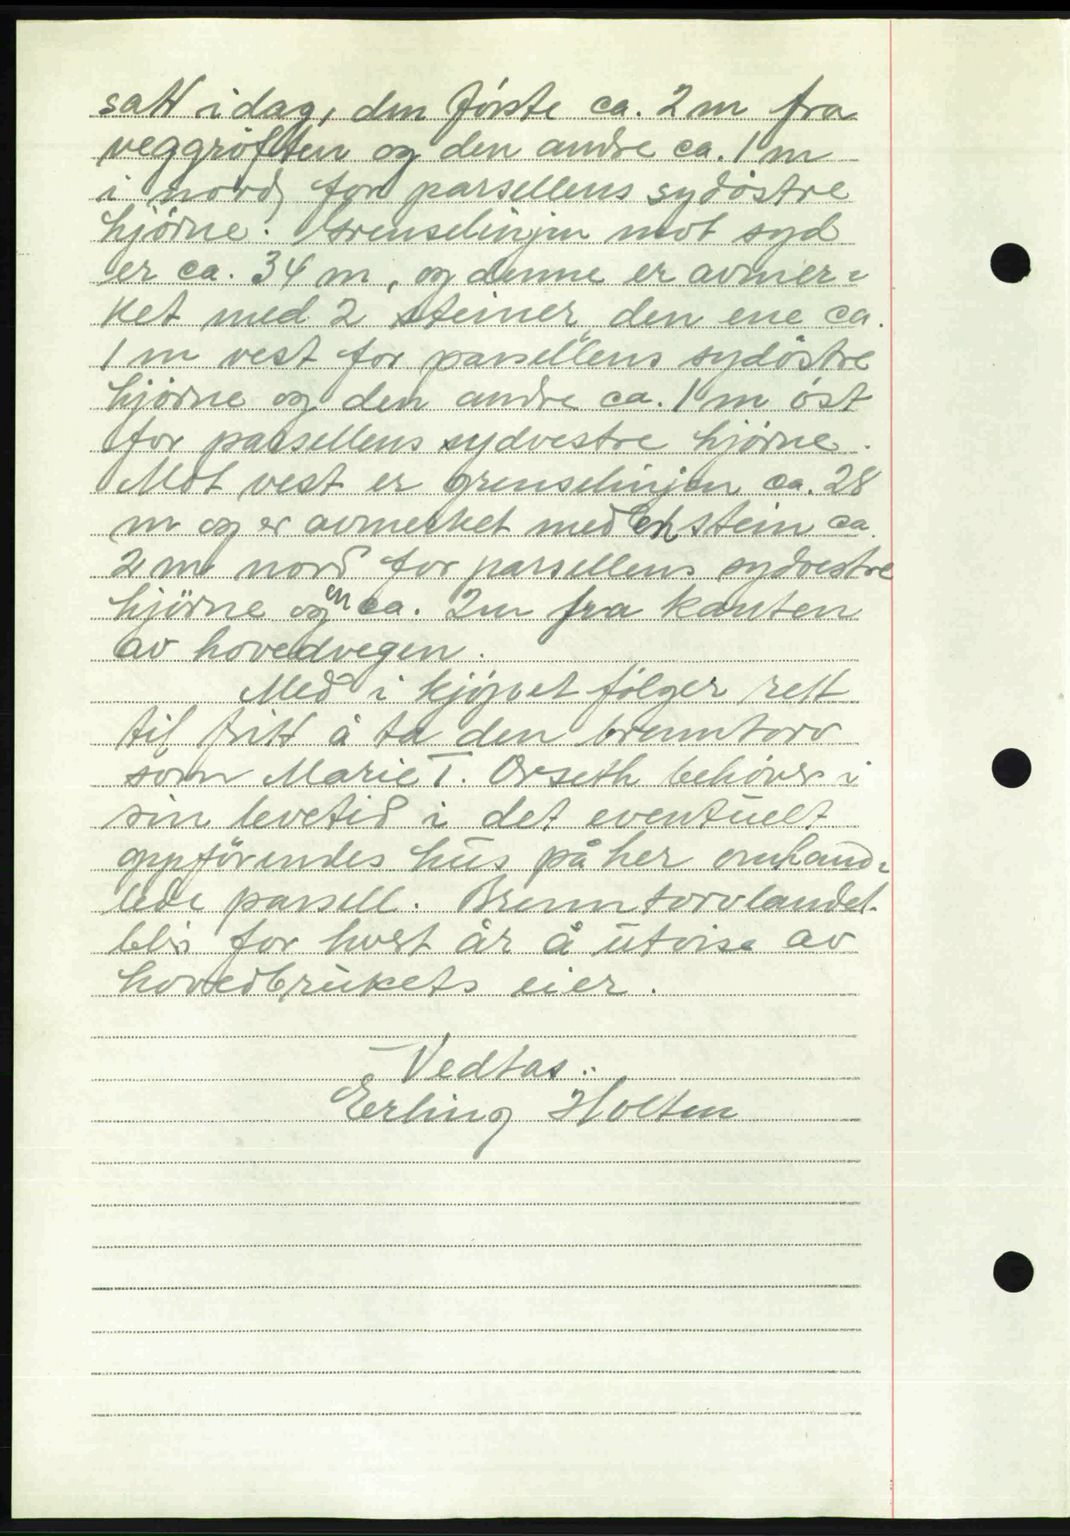 satt i dag, den første ca. 2 m fra
veggrøften og den andre ca. 1 m
i nord for parsellens sydøstre
hjørne. Grenselinjen mot syd
er ca. 34 m, og denne er avmer=
ket med 2 steiner, den ene ca.
1 m vest for parsellens sydøstre
hjørne og den andre ca. 1 m øst
for parsellens sydvestre hjørne.
Mot vest er grenselinjen ca. 28
m og er avmerket med en stein ca.
2 m nord for parsellens sydvestre
hjørne og en ca. 2 m fra kanten
av hovedvegen.
Med i kjøpet følger rett
til fritt å ta den brenntorv
som Marie T. Orseth behøver i
sin levetid i det eventuelt
oppførendes hus på her omhand=
lede parsell. Brenntorvlandet
blir for hvert år å utvise av
hovedbrukets eier.
Vedtas:
Erling Holten